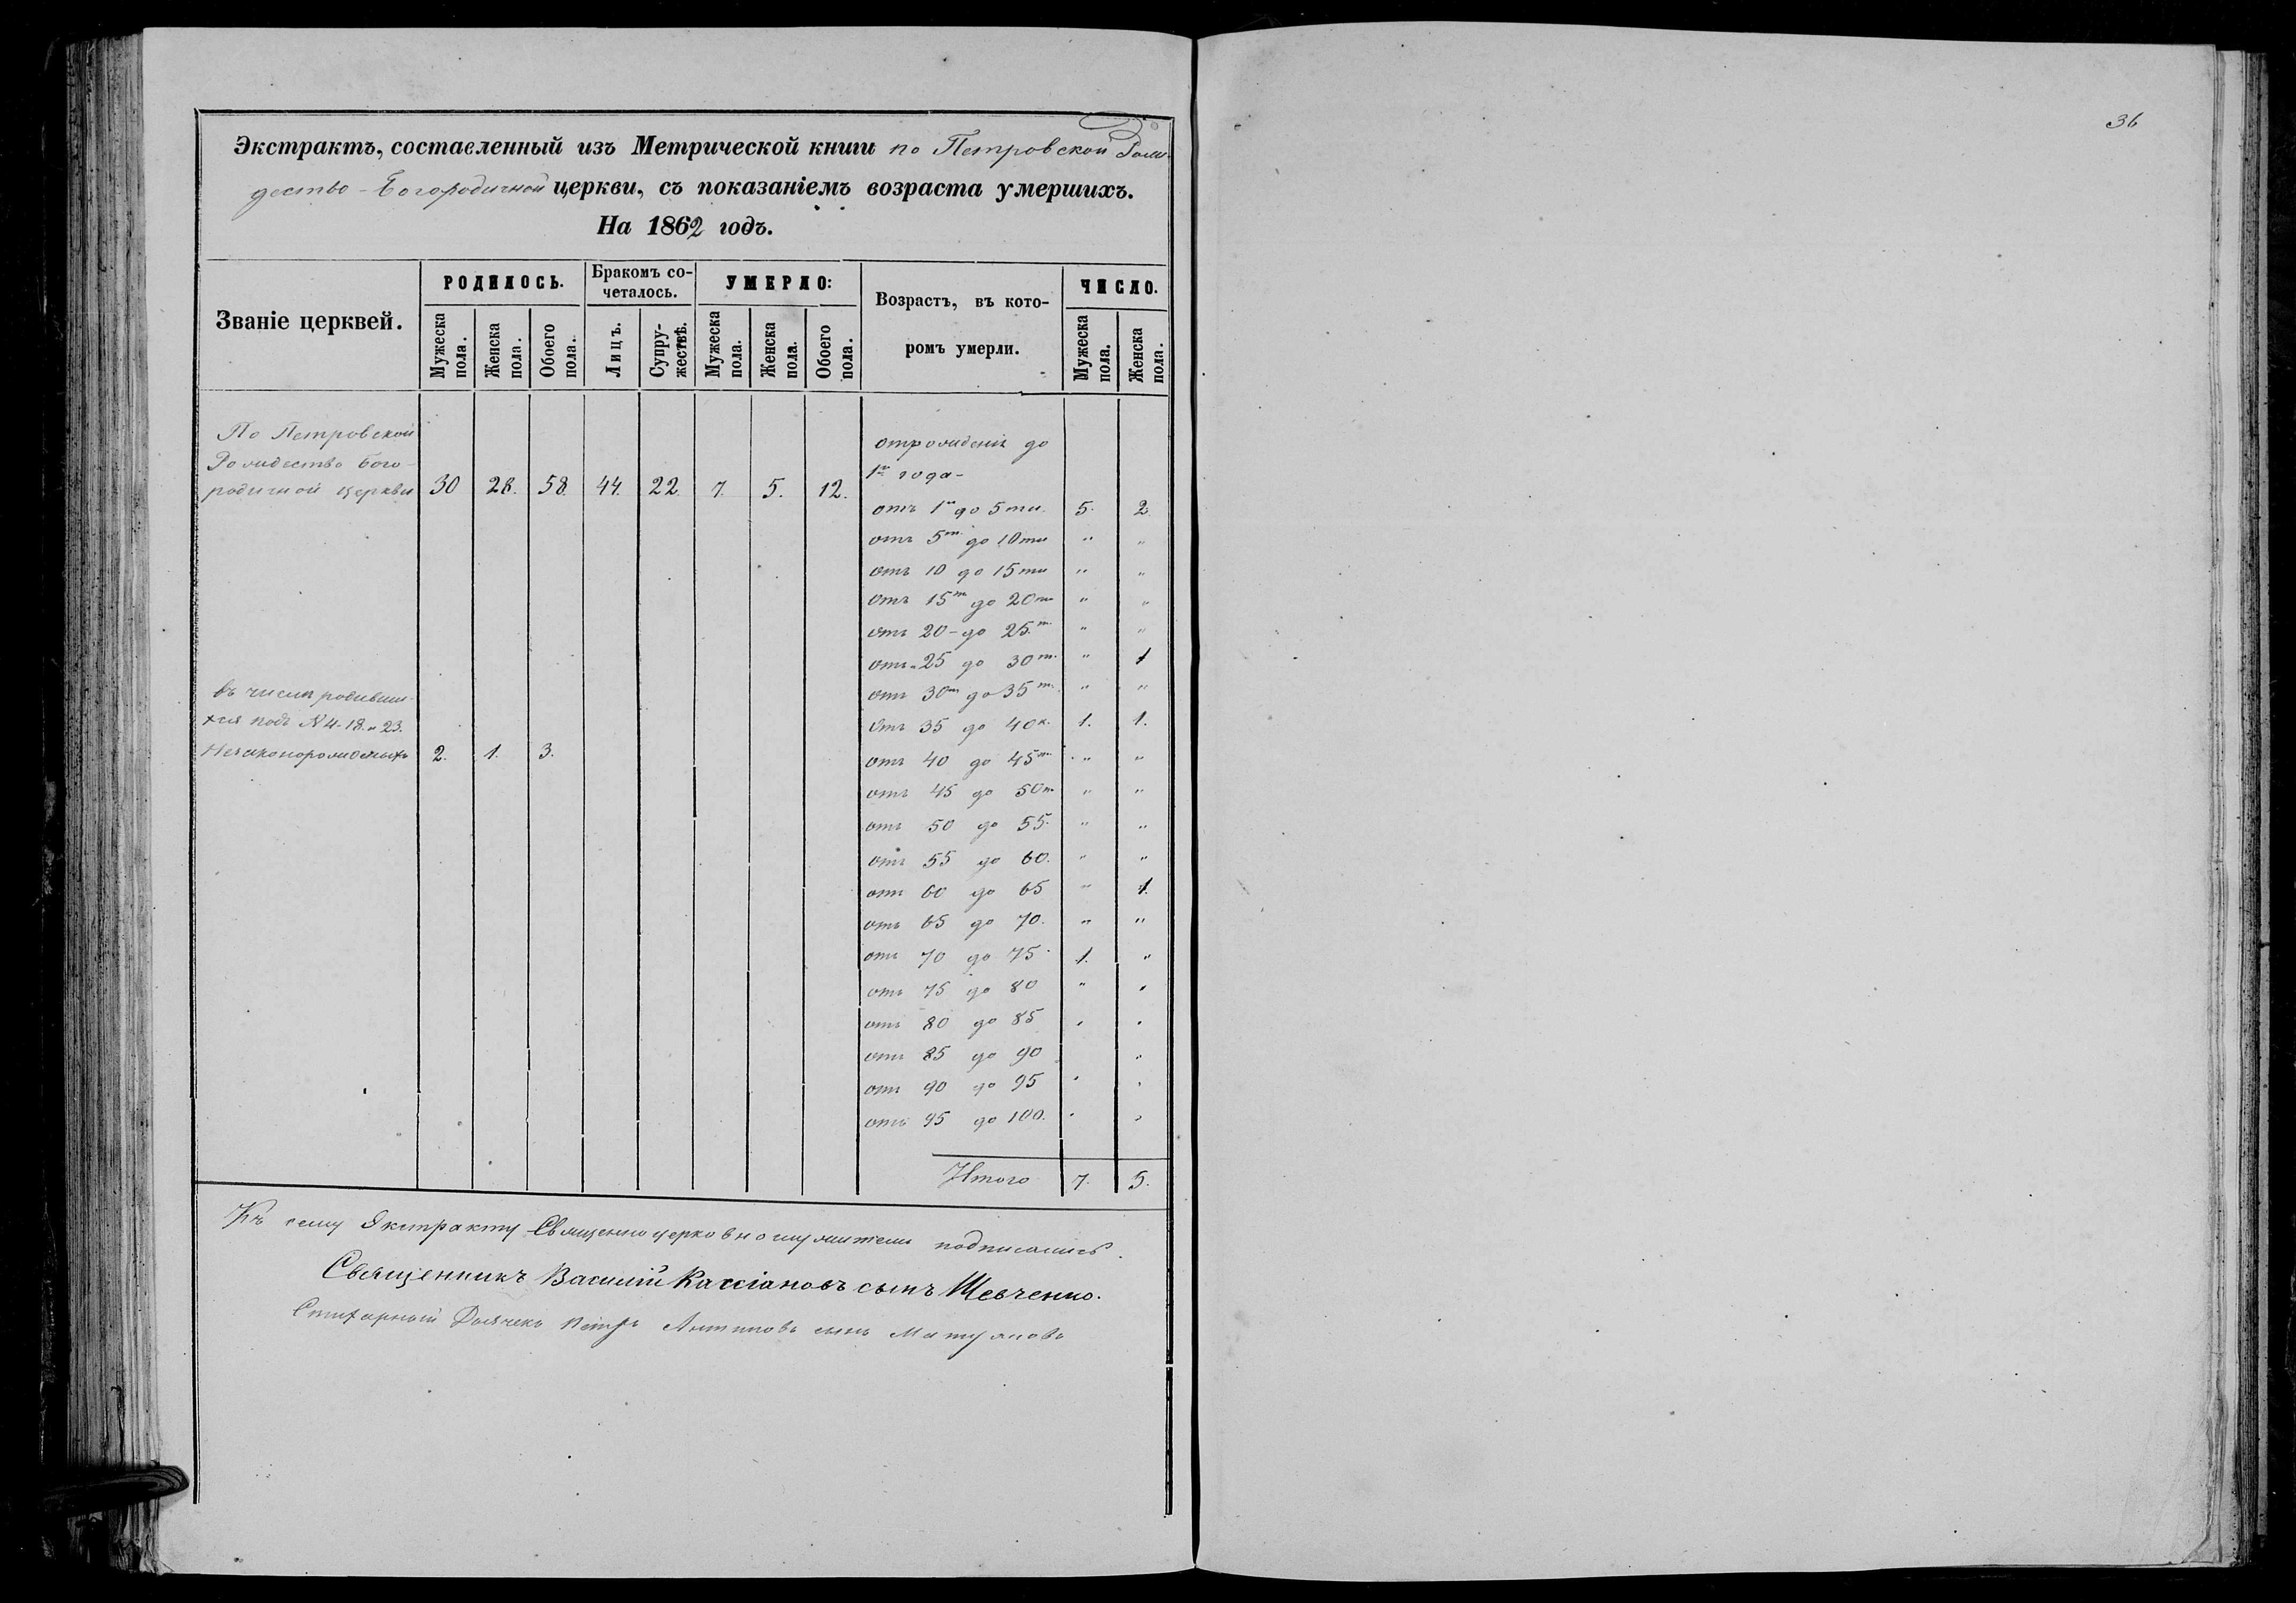 Экстрактъ, составленный изъ Метрической книги по Петровской Рож-
дество-Богородичной церкви, съ показаніемъ возраста умершихъ.
На 1862 годъ.
36
Званіе церквей.
РОДИЛОСЬ.
Мужеска пола.
Женска пола.
Обоего пола.
Бракомъ со-
четалось.
Лицъ.
Супру-
жествъ.
УМЕРЛО:
Мужеска пола.
Женска пола.
Обоего пола.
Возрастъ, въ кото-
ромъ умерли.
ЧИСЛО.
Мужеска пола.
Женска пола.
По Петровской
Рождество Бого-
родичной церкви 30 28. 58. 44. 22. 7. 5. 12.
отрожденія до
1го года-
отъ 1го до 5ти. 5. 2.
отъ 5ти до 10ти " "
отъ 10 до 15ти " "
отъ 15ти до 20ти " "
отъ 20-до 25.ти " "
отъ 25 до 30ти. " 1
отъ 30ти до 35ти. " "
отъ 35 до 40к. 1. 1.
отъ 40 до 45ти " "
отъ 45 до 50ти " "
отъ 50 до 55. " "
отъ 55 до 60. " "
отъ 60 до 65 " 1.
отъ 65 до 70. " "
отъ 70 до 75 1. "
отъ 75 до 80 " "
отъ 80 до 85 " "
отъ 85 до 90 "
отъ 90 до 95 " "
отъ 95 до 100. " "
Итого 7. 5.
въ числѣ родивши-
хся подъ N 4-18. и 23.
Незаконорожденыхъ 2. 1. 3.
Къ сему Экстракту Священноцерковнослужители подписались.
Священникъ Василій Кассіановъ сынъ Шевченко.
Стихарный Дьячекъ Петръ Антиповъ сынъ